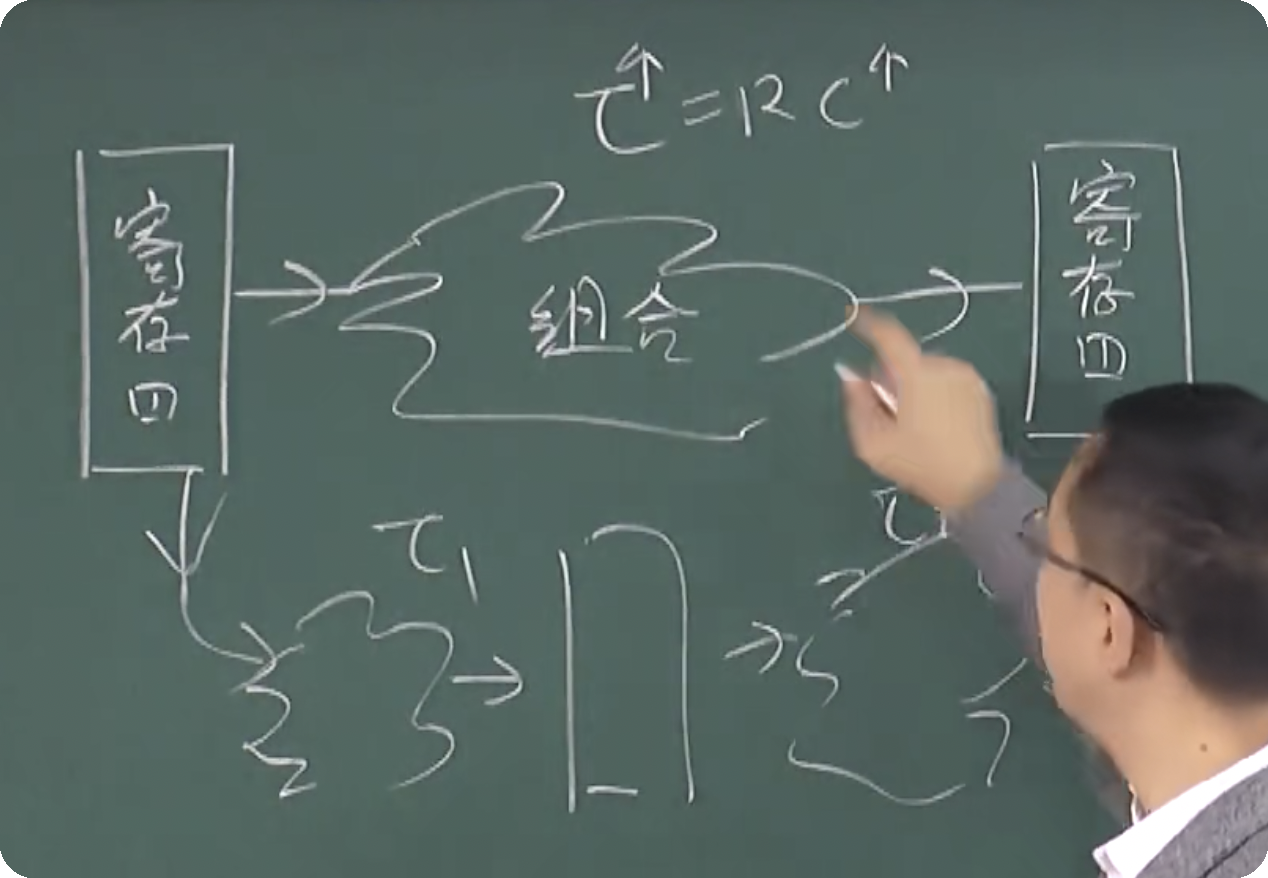 τ↑ = RC↑
寄存四
组合
寄存四
τ1
τ